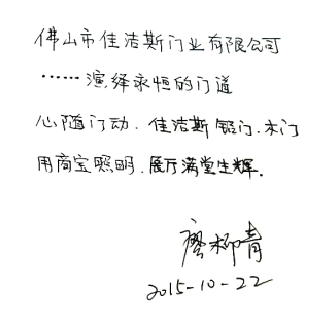 佛山市佳洁斯门业有限公司
……演绎永恒的门道
心随门动．佳洁斯铝门．木门
用商宝照明．展厅满堂生辉．
廖柳青
2015-10-22